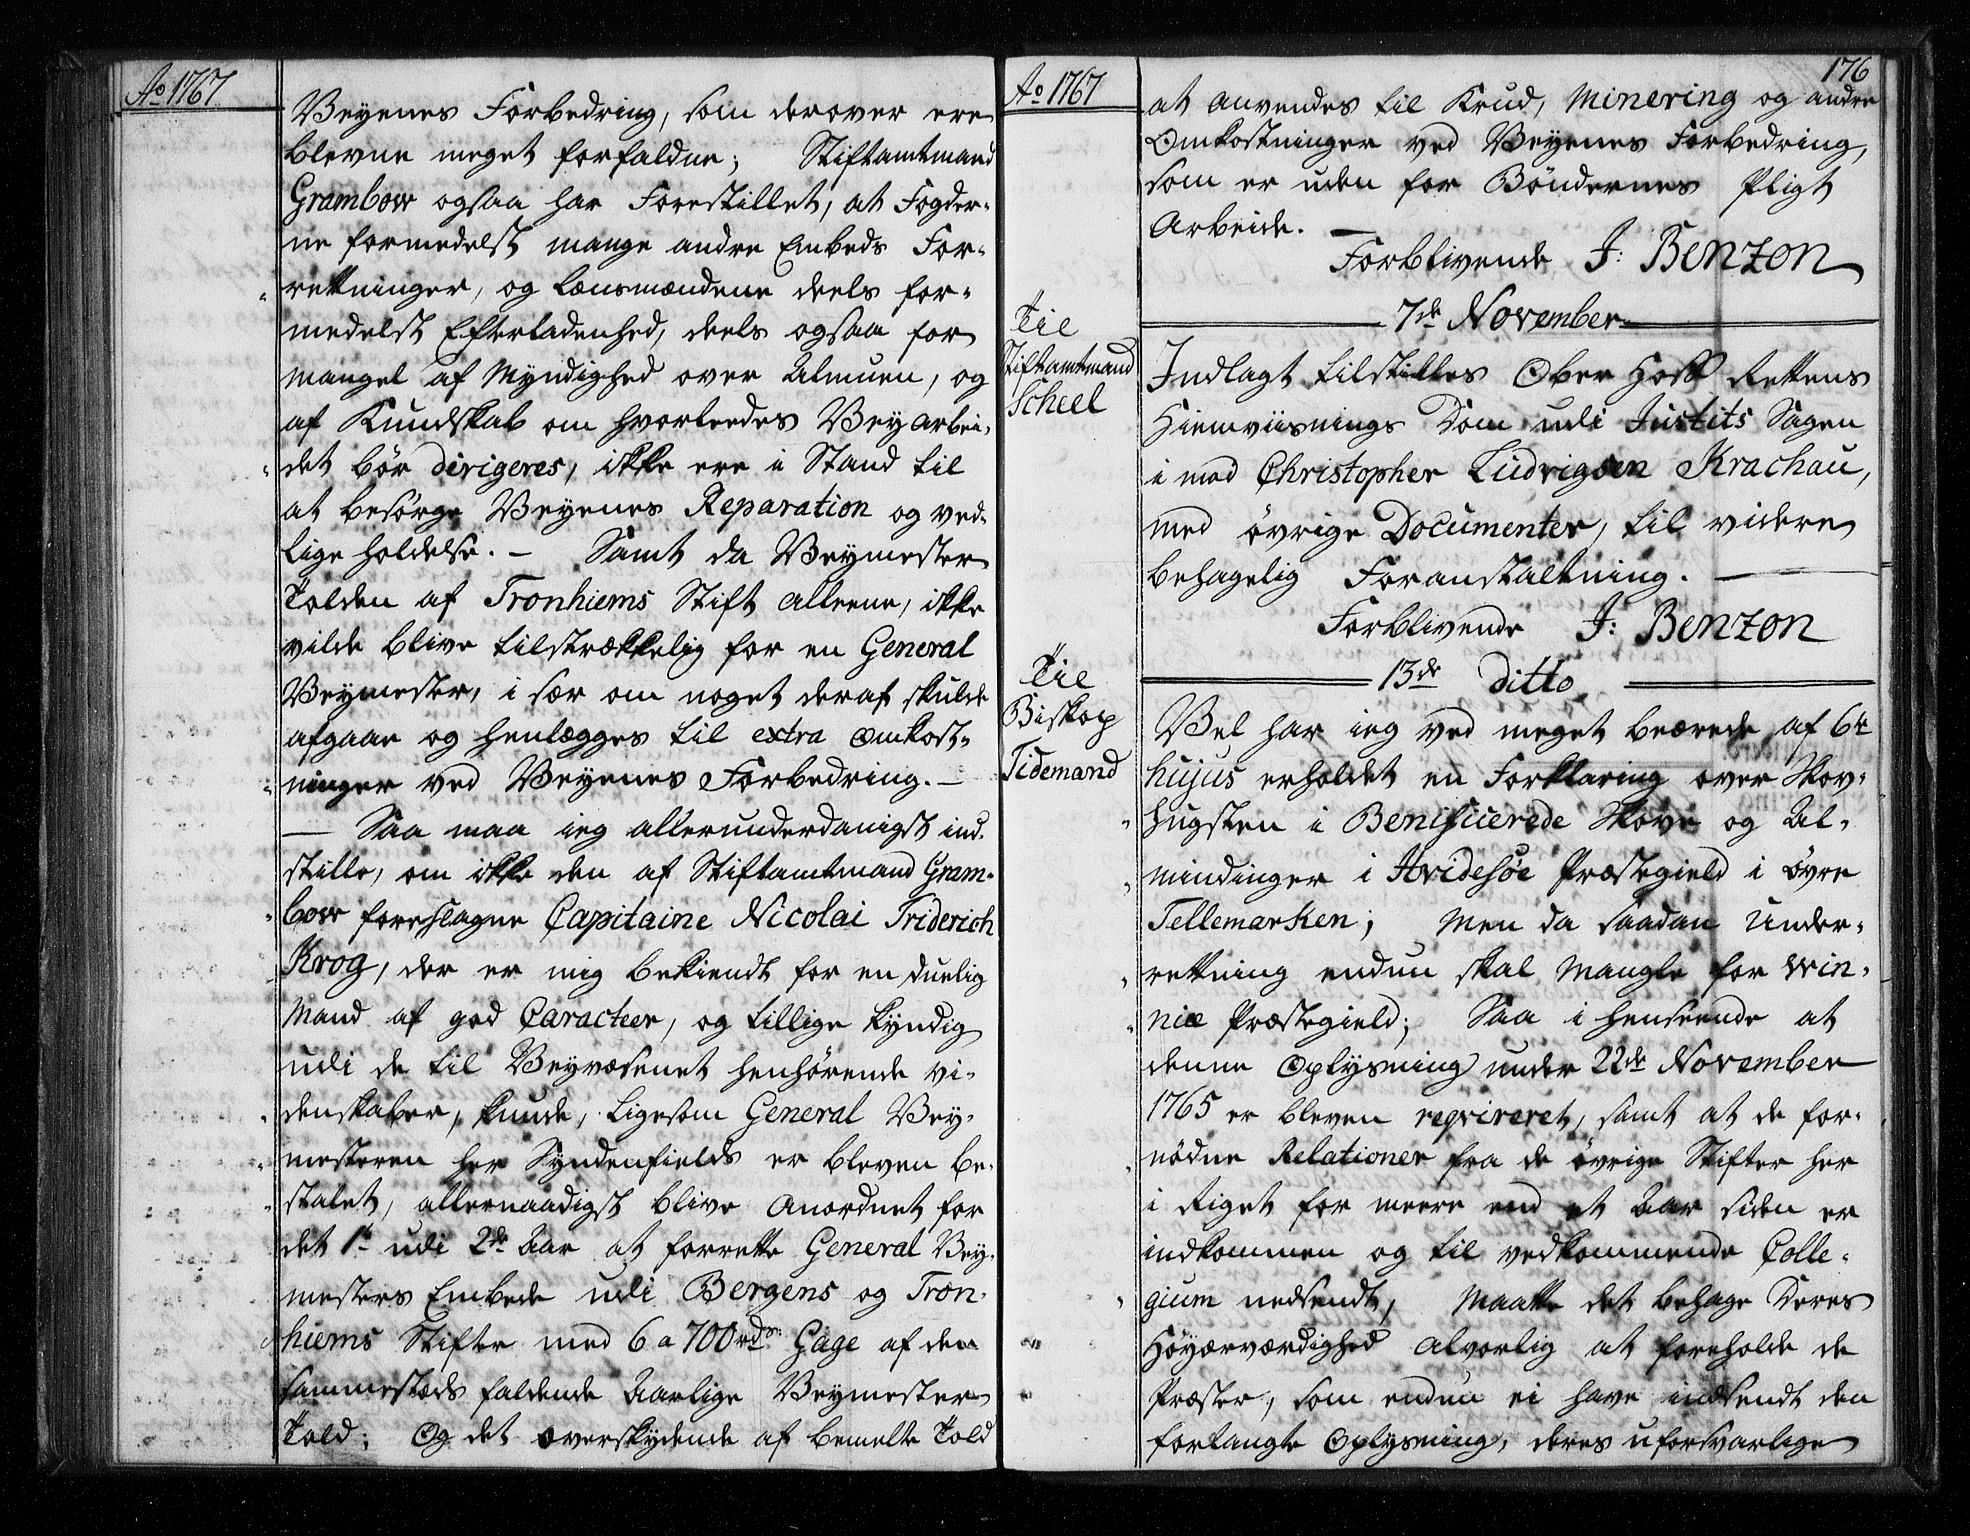 Ao 1767
Veyenes Forbedring, som derover ere
blevne meget forfaldne; Stiftamtmand
Grambow ogsaa har Forestillet, at Fogder-
ne formedelst mange andre Embeds For-
retninger, og Lensmændene deels for-
medelst Efterladenhed, deels ogsaa for
mangel af Myndighed over Almuen, og
af Kundskab om hvorleedes Vey arbei-
det bör dirigeres, ikke ere i Stand til
at besörge Veyenes Reparation og ved-
lige holdelse. - Samt da Veymester
Tolden af Tronhiems Stift alleene, ikke
vilde blive tilstrækkelig for en General
Veymester, i sær om noget deraf skulde
afgaae og henlægges til extra omkost-
ninger ved Veyenes Forbedring. -
- Saa maa ieg allerunderdanigst ind-
stille, om ikke den af Stiftamtmand Gram-
bow foreslagne Capitaine Nicolai Friderich
Krog, der er mig bekiendt for en duelig
Mand af god Caracteer, og tillige kyndig
udi de til Veyvæsenet henhörende vi-
denskaber, kunde, ligesom General Vey-
mesteren her Syndenfields er bleven be-
stalet, allernaadigst blive anordnet for
det 1te udi 2de Aar at forrette General Vey-
mesters Embede udi Bergens og Tron-
hiems Stifter med 6 a 700 rdr Gage af den
sammesteds faldende Aarlige Veymester
Told; Og det overskydende af bemelte Told
176
Ao 1767
at anvendes til Krud, Minering og andre
Omkostninger ved Veyenes Forbedring,
som er uden for Böndernes Pligt
Arbeide. -
Forblivende J: Benzon
7de November
Til
Stiftamtmand
Scheel
Indlagt tilstilles Ober Hoff Rettens
Hiemviisnings Dom udi Justits Sagen
i mod Christopher Ludvigsen Krachau,
med övrige Documenter, til videre
behagelig Foranstaltning. -
Forblivende J: Benzon
13de ditto
Til
Biskop
Tidemand
Vel har ieg ved meget beærede af 6te
hujus erholdet en Forklaring over Skov-
hugsten i Benificerede Skove og Al-
mindinger i Hvidesöe Præstegield i övre
Tellemarken; Men da saadan Under-
retning endnu skal mangle for Win-
nie Præstegield; Saa i henseende at
denne Oplysning under 22de November
1765 er bleven reqvireret, samt at de for-
nödne Relationer fra de övrige Stifter her
i Riget for meere end et Aar siden er
indkommen og til vedkommende Colle-
gium nedsendt, Maatte det behage Deres
Höyærværdighed alvorlig at foreholde de
Præster, som endnu ei have indsendt den
forlangte Oplysning, deres uforsvarlige